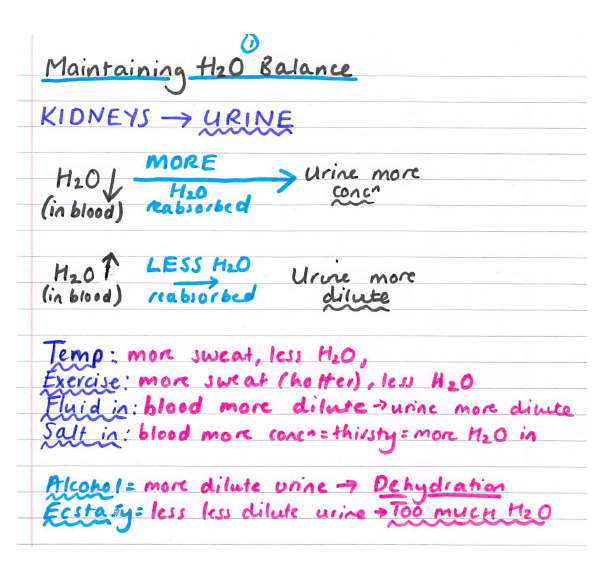 ①
Maintaining H2O Balance
KIDNEYS → URINE
H2O ↓ MORE Urine more
H2O concⁿ
(in blood) reabsorbed
H2O ↑ LESS H2O → Urine more
(in blood) reabsorbed dilute
Temp: more sweat, less H2O,
Exercise: more sweat (hotter), less H2O
Fluid in: blood more dilute → urine more dilute
Salt in: blood more concⁿ = thirsty = more H2O in
Alcohol = more dilute urine → Dehydration
Ecstasy = less less dilute urine → TOO MUCH H2O